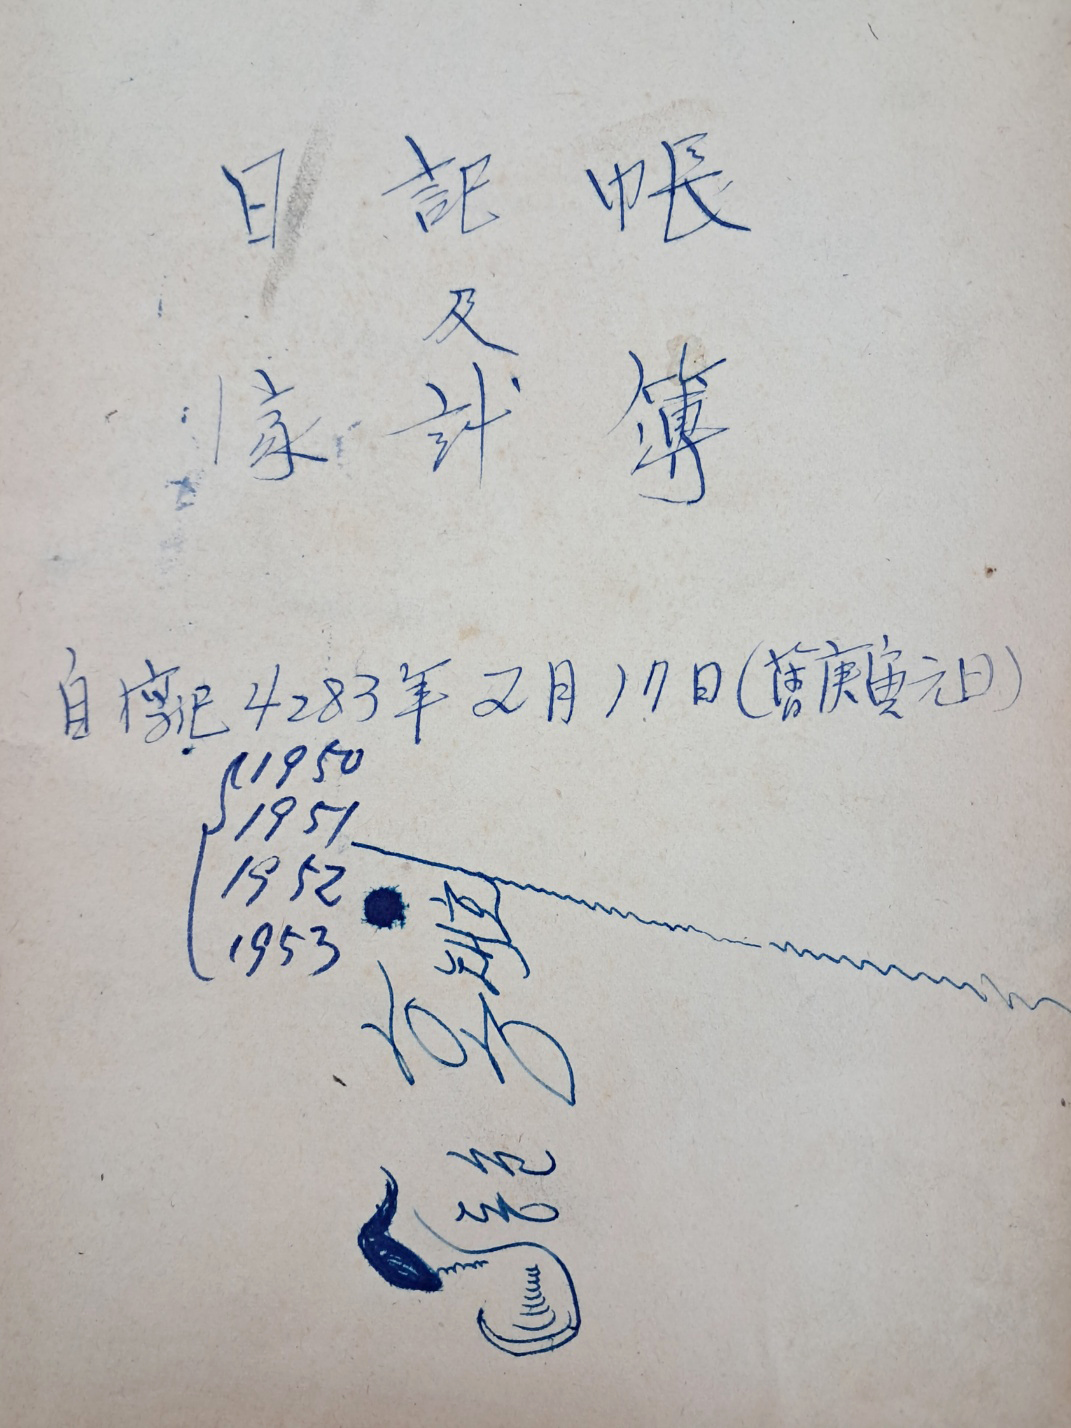 日記帳
及
家計簿
自檀紀4283年2月17日(舊庚寅元日)
1950
1951
1952
1953